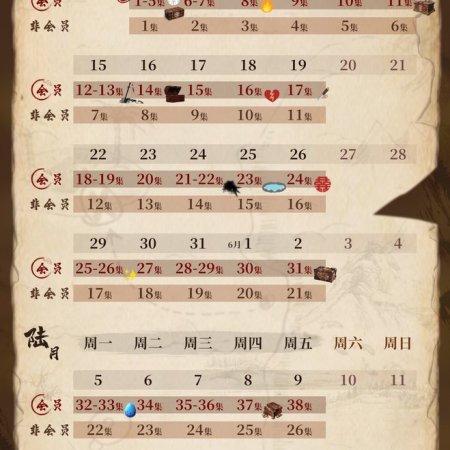 会员 1-5集 6-7集 8集 9集 10集 11集
非会员 1集 2集 3集 4集 5集 6集
15 16 17 18 19 20 21
会员 12-13集 14集 15集 16集 17集
非会员 7集 8集 9集 10集 11集
22 23 24 25 26 27 28
会员 18-19集 20集 21-22集 23集 24集 囍
非会员 12集 13集 14集 15集 16集
29 30 31 6月1 2 3 4
会员 25-26集 27集 28-29集 30集 31集
非会员 17集 18集 19集 20集 21集
陆月 周一 周二 周三 周四 周五 周六 周日
5 6 7 8 9 10 11
会员 32-33集 34集 35-36集 37集 38集
非会员 22集 23集 24集 25集 26集